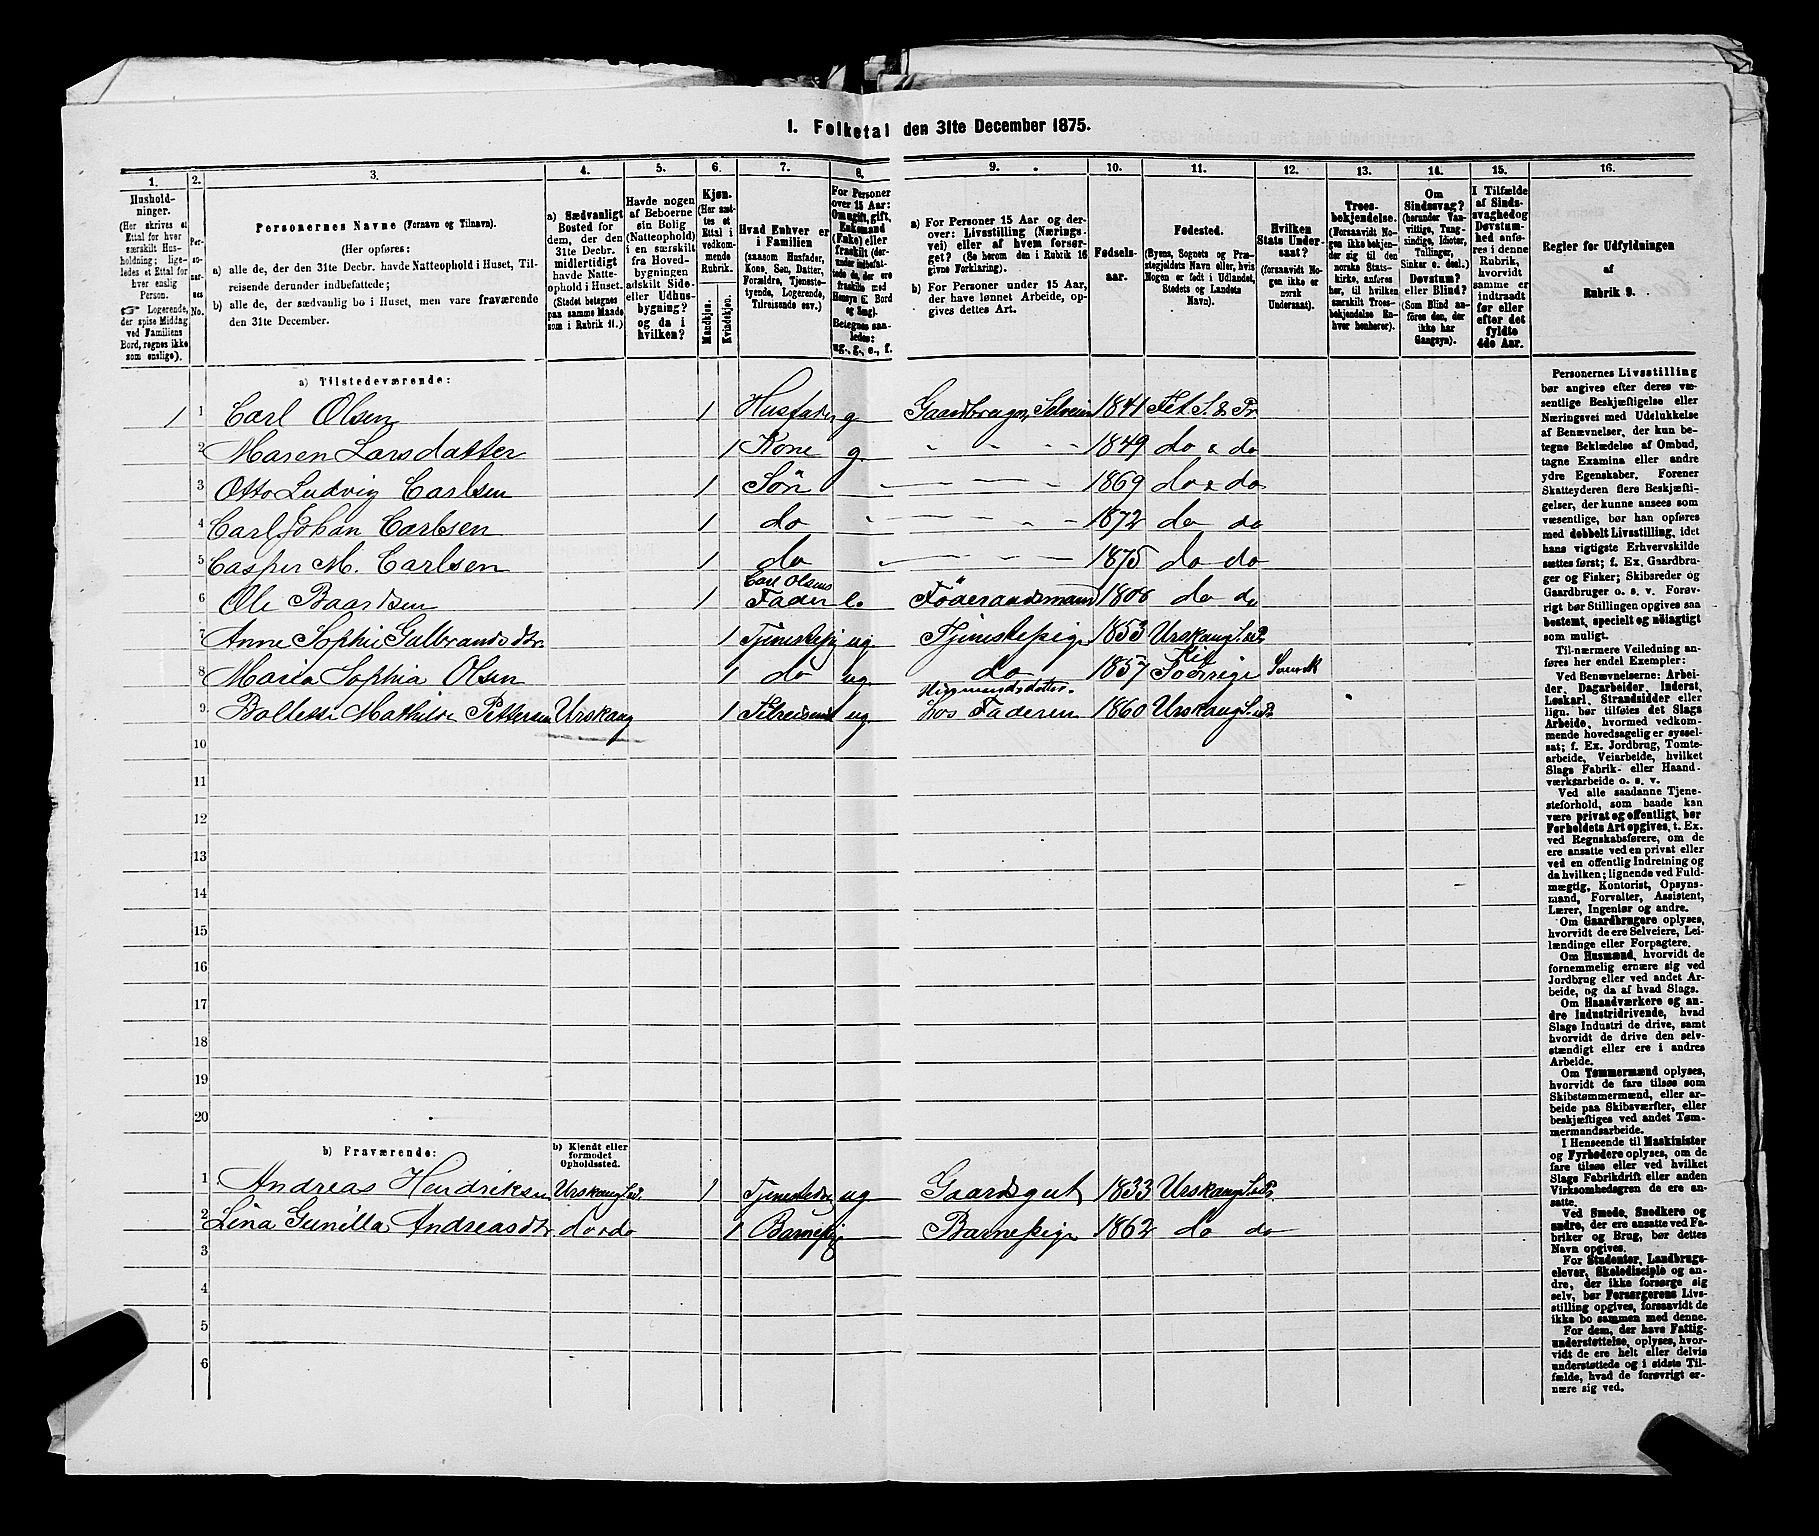 I. Folketal den 31te December 1875.
1. 2. 3. 4. 5. 6. 7. 8. 9. 10. 11. 12. 13. 14. 15. 16.
Hushold-
ninger.
(Her skrives et
Ettal for hver
særskilt Hus-
holdning; lige-
ledes et Ettal for
hver enslig
Person.
☞ Logerende,
der spise Middag
ved Familiens
Bord, regnes ikke
som enslige).
Per-
so-
ner-
nes
No.
Personernes Navne (Fornavn og Tilnavn).
(Her opføres:
a) alle de, der den 31te Decbr. havde Natteophold i Huset, Til-
reisende derunder indbefattede;
b) alle de, der sædvanlig bo i Huset, men vare fraværende
den 31te December.
a) Sædvanligt
Bosted for
dem, der den
31te Decbr.
midlertidigt
havde Natte-
ophold i Huset.
(Stedet betegnes
paa samme Maade
som i Rubrik 11.)
Havde nogen
af Beboerne
sin Bolig
(Natteophold)
i en særskilt
fra Hoved-
bygningen
adskilt Side-
eller Udhus-
bygning?
og da i
hvilken?
Kjøn.
(Her sæt-
tes et
Ettal i
vedkom-
mende
Rubrik.
Mandkjøn.
Kvindekjøn.
Hvad Enhver er
i Familien
(saasom Husfader,
Kone, Søn, Datter,
Forældre, Tjeneste-
tyende, Logerende,
Tilreisende osv.)
For Personer
over 15 Aar:
Om ugift, gift,
Enkemand
(Enke) eller
fraskilt (der-
under indbefat-
tede de, der ere
fraskilte med
Hensyn til Bord
og Seng).
Betegnes saa-
ledes:
ug., g., e., f.
a) For Personer 15 Aar og der-
over: Livsstilling (Nærings-
vei) eller af hvem forsør-
get? (Se herom den i Rubrik 16
givne Forklaring).
b) For Personer under 15 Aar,
der have lønnet Arbeide, op-
gives dettes Art.
Fødsels-
aar.
Fødested.
(Byens, Sognets og Præ-
stegjeldets Navn eller, hvis
Nogen er født i Udlandet,
Stedets og Landets
Navn).
Hvilken
Stats Under-
saat?
(forsaavidt No-
gen ikke er
norsk
Undersaat).
Troes-
bekjendelse.
(Forsaavidt No-
gen ikke bekjen-
der sig til den
norske Stats-
kirke, anføres
her, til hvilken
særskilt Troes-
bekjendelse En-
hver henhører).
Om
Sindssvag?
(herunder Van-
vittige, Tung-
sindige, Idioter,
Tullinger,
Sinker o. desl.)
Døvstum?
eller Blind?
(Som Blind an-
føres den, der
ikke har
Gangsyn).
I Tilfælde
af Sinds-
svaghed og
Døvstum-
hed anfø-
res i denne
Rubrik,
hvorvidt
samme er
indtraadt
før eller
efter det
fyldte
4de Aar.
Regler for Udfyldningen
af
Rubrik 9.
a) Tilstedeværende:
1 1 Carl Olsen 1 Husfader g Gaardbruger, Selveier 1841 Fet S. & Pr
2 Maren Larsdatter 1 Kone g. " " " " 1849 do & do
3 Otto Ludvig Carlsen 1 Søn 1869 do & do
4 Carl Johan Carlsen 1 do 1872 do do
5 Casper M. Carlsen 1 do 1875 do do
6 Ole Baardsen 1 Carl Olsens Fader e. Föderaadsmand 1808 do do
7 Anne Sophie Gulbrandsdtr. 1 Tjenestepig ug. Tjenestepige 1853 Urskoug S. & P.
8 Maria Sophia Olsen 1 do ug. do 1857 Sverrige Svensk
9 Boltette Mathilde Pettersen Urskoug 1 Tilreisende ug Hos Faderen 1860 Urskoug S. & P.
10
11
12
13
14
15
16
17
18
19
20
b) Fraværende:
b) Kjendt eller
formodet
Opholdssted.
1 Andreas Hendriksen Urskoug S. & P. 1 Tjenestedr. ug Gaardsgut 1833 Urskoug S. & Pr.
2 Lina Gunilla Andreasdtr. do & do 1 Barnepig Barnepige 1862 do do
3
4
5
6
Personernes Livsstilling
bør angives efter deres væ-
sentlige Beskjæftigelse eller
Næringsvei med Udelukkelse
af Benævnelser, der kun be-
tegne Beklædelse af Ombud,
tagne Examina eller andre
ydre Egenskaber. Forener
Skatteyderen flere Beskjæfti-
gelser, der kunne ansees som
væsentlige, bør han opføres
med dobbelt Livsstilling, idet
hans vigtigste Erhvervskilde
sættes først; f. Ex. Gaardbru-
ger og Fisker; Skibsreder og
Gaardbruger o. s. v. Forøv-
rigt bør Stillingen opgives saa
bestemt, specielt og nøiagtigt
som muligt.
Til nærmere Veiledning an-
føres her endel Exempler:
Ved Benævnelserne: Arbei-
der, Dagarbeider, Inderst,
Løskarl, Strandsidder eller
lign. bør tilføies det Slags
Arbeide, hvormed vedkom-
mende hovedsagelig er syssel-
sat; f. Ex. Jordbrug, Tomte-
arbeide, Veiarbeide, hvilket
Slags Fabrik- eller Haand-
værksarbeide o. s. v.
Ved alle saadanne Tjene-
steforhold, som baade kan
være privat og offentligt, bør
Forholdets Art opgives, t. Ex.
ved Regnskabsførere, om de
ere ansatte ved en privat eller
ved en offentlig Indretning og
da hvilken; lignende ved Fuld-
mægtig, Kontorist, Opsyns-
mand, Forvalter, Assistent,
Lærer, Ingeniør og andre.
Om Gaardbrugere oplyses,
hvorvidt de ere Selveiere, Lei-
lændinge eller Forpagtere.
Om Husmænd, hvorvidt de
fornemmelig ernære sig ved
Jordbrug eller ved andet Ar-
beide, og da af hvad Slags.
Om Haandværkere og an-
dre Industridrivende, hvad
Slags Industri de drive, samt
hvorvidt de drive den selv-
stændigt eller ere i andres
Arbeide.
Om Tømmermænd oplyses,
hvorvidt de fare tilsøs som
Skibstømmermænd, eller ar-
beide paa Skibsværfter, eller
beskjæftiges ved andet Tøm-
mermandsarbeide.
I Henseende til Maskinister
og Fyrbødere oplyses, om de
fare tilsøs eller ved hvilket
Slags Fabrikdrift eller anden
Virksomhedsgren de ere an-
satte.
Ved Smede, Snedkere og
andre, der ere ansatte ved Fa-
briker og Brug, bør dettes
Navn opgives.
For Studenter, Landbrugs-
elever, Skoledisciple og an-
dre, der ikke forsørge sig
selv, bør Forsørgerens Livs-
stilling opgives, forsaavidt de
ikke bo sammen med denne.
For dem, der have Fattig-
understøttelse, oplyses, hvor-
vidt de ere helt eller delvis
understøttede og i sidste Til-
fælde, hvad de forøvrigt er-
nære sig ved.